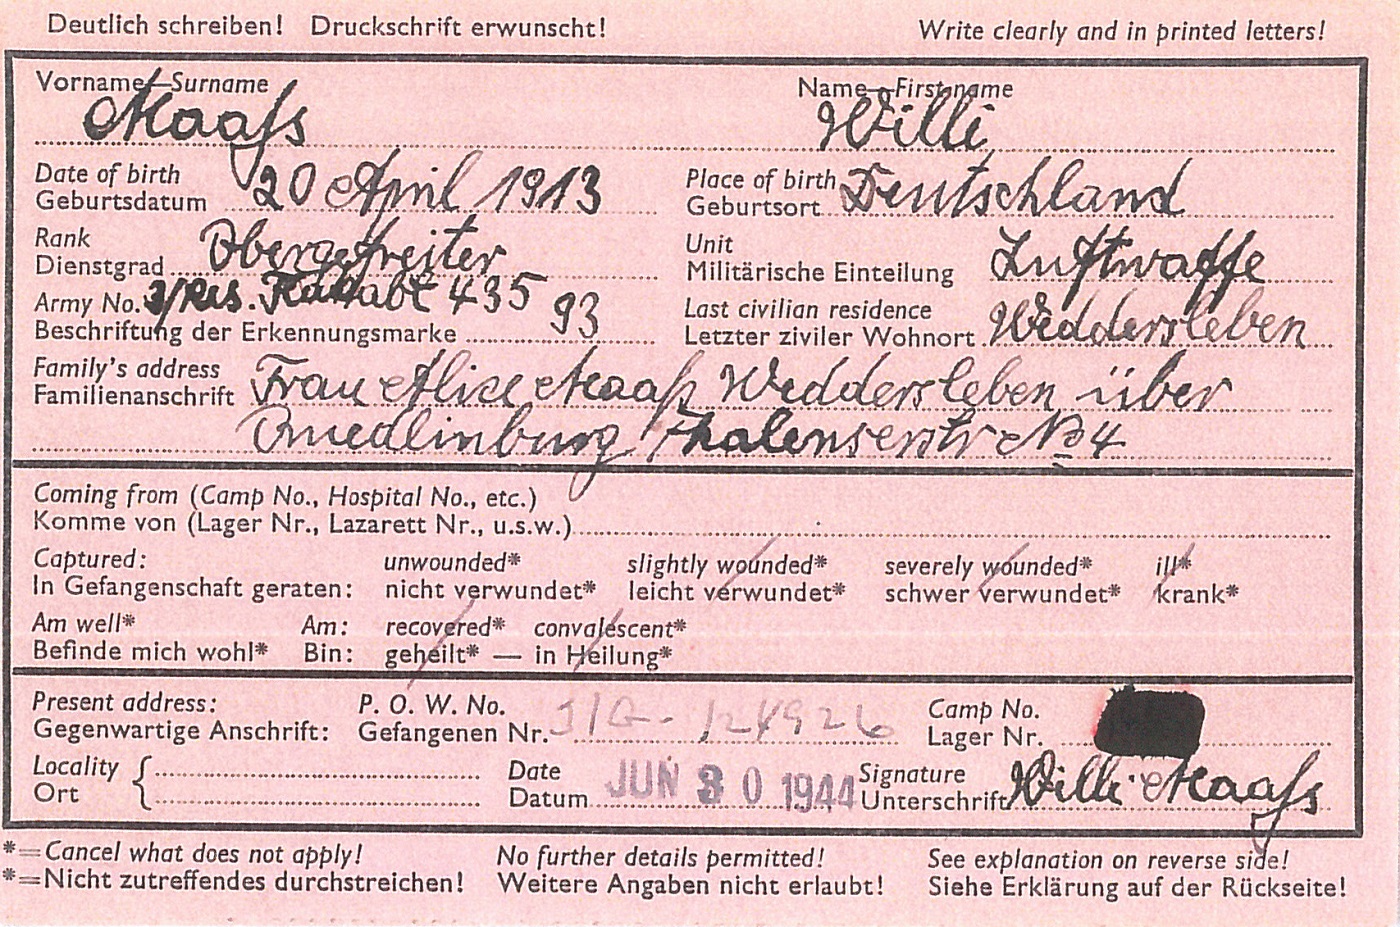 Deutlich schreiben! Druckschrift erwunscht! Write clearly and in printed letters!
Vorname—Surname Name—First name
Maaſs Willi
Date of birth 20 April 1913 Place of birth Deutschland
Geburtsdatum Geburtsort
Rank Obergefreiter Unit Luftwaffe
Dienstgrad Militärische Einteilung
Army No. 435 93 Last civilian residence
Beschriftung der Erkennungsmarke Letzter ziviler Wohnort Weddersleben
Family's address
Familienanschrift Frau Alice Maaß Weddersleben über
Quedlinburg Thalenserstr No 4
Coming from (Camp No., Hospital No., etc.)
Komme von (Lager Nr., Lazarett Nr., u.s.w.)
Captured: unwounded* slightly wounded* severely wounded* ill*
In Gefangenschaft geraten: nicht verwundet* leicht verwundet* schwer verwundet* krank*
Am well* Am: recovered* convalescent*
Befinde mich wohl* Bin: geheilt* — in Heilung*
Present address: P. O. W. No. Camp No.
Gegenwartige Anschrift: Gefangenen Nr. 31G-124926 Lager Nr.
Locality Date JUN 30 1944 Signature Willi Maaſs
Ort Datum Unterschrift
*=Cancel what does not apply! No further details permitted! See explanation on reverse side!
*=Nicht zutreffendes durchstreichen! Weitere Angaben nicht erlaubt! Siehe Erklärung auf der Rückseite!